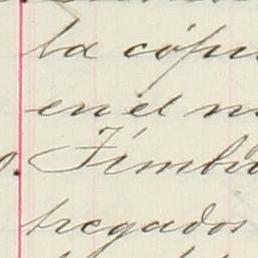 la cópi
en el m
Timbr
tregados